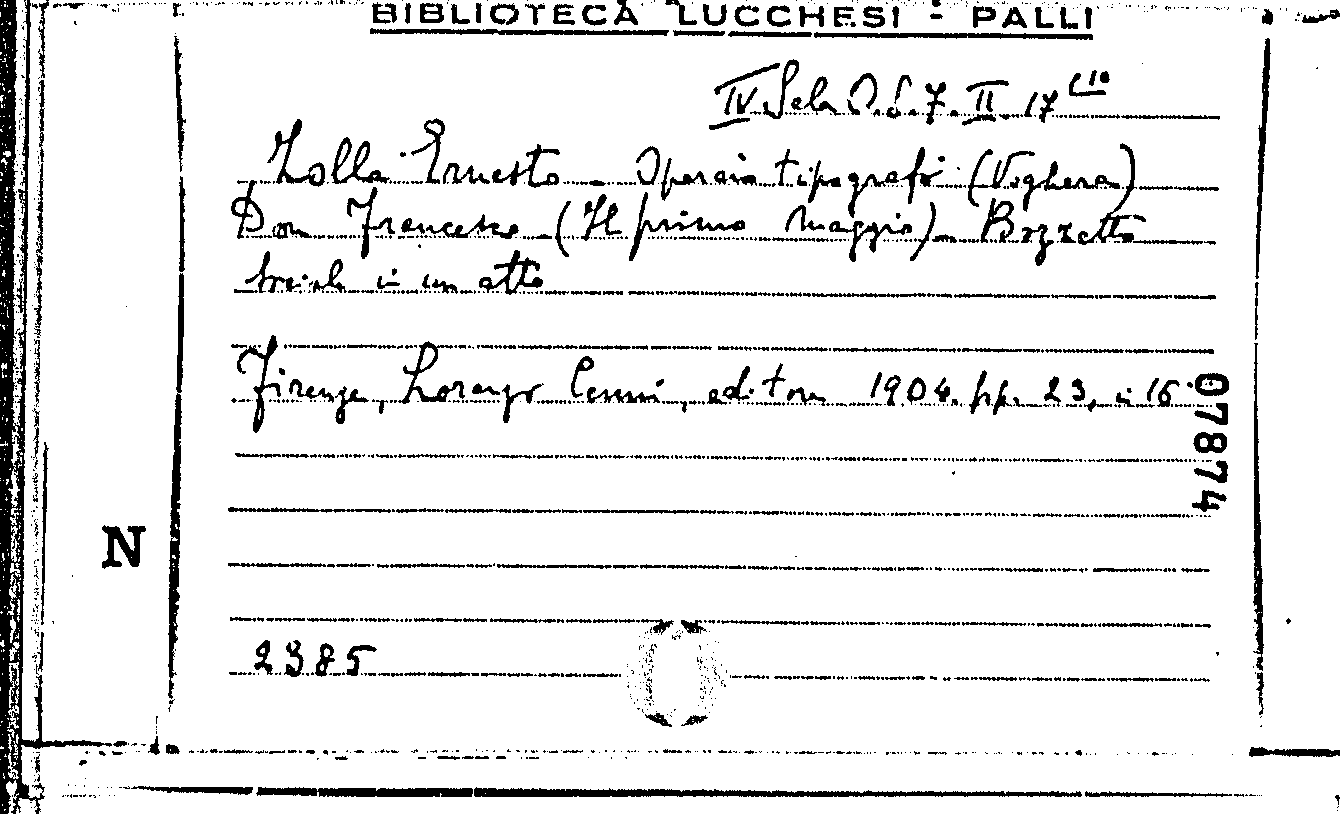 BIBLIOTECA LUCCHESI - PALLI
IV Sala O.S.7.II.17 (10
Zolla Ernesto - Operaio tipografo (Voghera)
Don Francesco - (Il primo maggio) - Bozzetto
sociale in un atto
Firenze, Lorenzo Cenni, editore 1904. pp. 23, in 16°
07874
N
2385